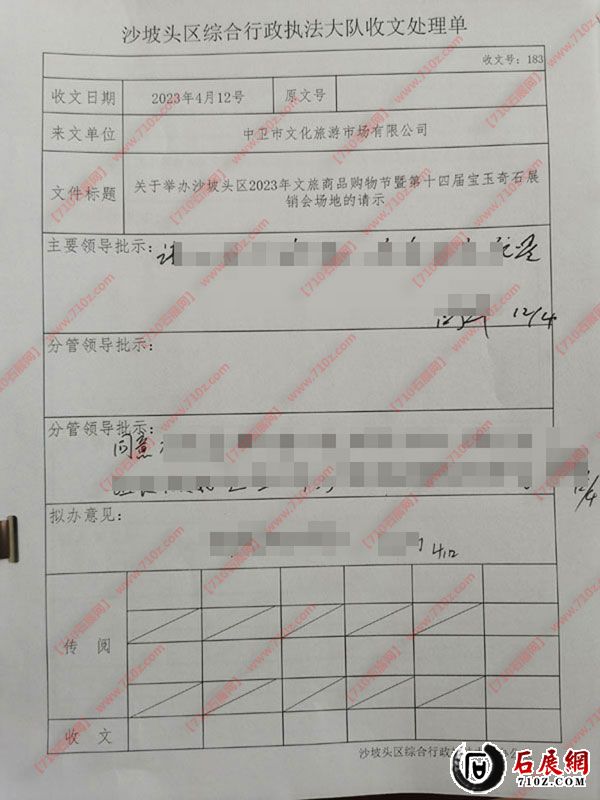 沙坡头区综合行政执法大队收文处理单
收文号：183
收文日期 2023年4月12号 原文号
来文单位 中卫市文化旅游市场有限公司
文件标题 关于举办沙坡头区2023年文旅商品购物节暨第十四届宝玉奇石展
销会场地的请示
主要领导批示：
12/4
分管领导批示：
分管领导批示：
同意
12/4
拟办意见：
4/12
传 阅
收 文
沙坡头区综合行政
石展網
710z.COM
【710石展网】 www.710z.com